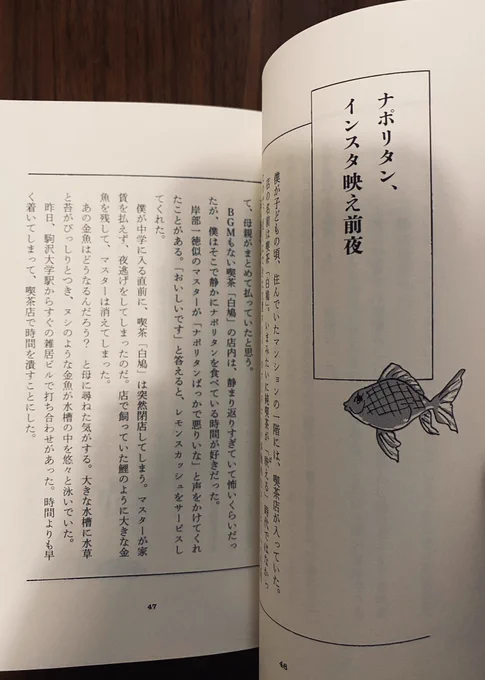 ナポリタン、
インスタ映え前夜
僕が子どもの頃、住んでいたマンションの一階には、喫茶店が入っていた。
店の名前は喫茶「白鳩」。いまみたいに純喫茶が「映える」時代ではなかっ
46
て、母親がまとめて払っていたと思う。
BGMもない喫茶「白鳩」の店内は、静まり返りすぎていて怖いくらいだっ
たが、僕はそこで静かにナポリタンを食べている時間が好きだった。
岸部一徳似のマスターが「ナポリタンばっかで悪りいな」と声をかけてくれ
たことがある。「おいしいです」と答えると、レモンスカッシュをサービスし
てくれた。
僕が中学に入る直前に、喫茶「白鳩」は突然閉店してしまう。マスターが家
賃を払えず、夜逃げをしてしまったのだ。店で飼っていた鯉のように大きな金
魚を残して、マスターは消えてしまった。
あの金魚はどうなるんだろう？　と母に尋ねた気がする。大きな水槽に水草
と苔がびっしりとつき、ヌシのような金魚が水槽の中を悠々と泳いでいた。
昨日、駒沢大学駅からすぐの雑居ビルで打ち合わせがあった。時間よりも早
く着いてしまって、喫茶店で時間を潰すことにした。
47